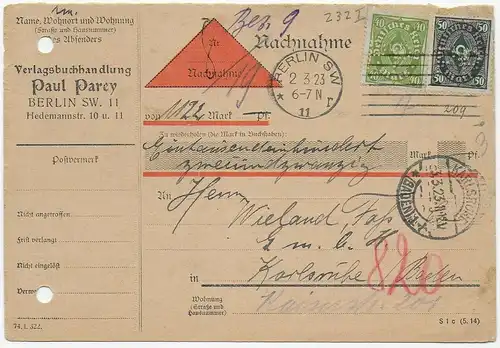 Name, Wohnort und Wohnung
(Straße und Hausnummer)
des Absenders
Verlagsbuchhandlung
Paul Parey
BERLIN SW. 11
Hedemannstr. 10 u. 11
Postvermerk
Nicht angetroffen
Frist verlangt
Nicht eingelöst
74. I. 322.
232 I
Nr.
Nachnahme
Nachnahme
BERLIN SW
2.3.23
6-7 N
11
Deutsches Reich
40
Deutsches Reich
50
50
209
von 1122 Mark Pf.
Zu wiederholen (die Mark in Buchstaben):
Eintausendeinhundert
zweiundzwanzig
An
Herrn
Wieland
G.m.b.H.
in Karlsruhe Baden
820
Wohnung
(Straße und
Hausnummer)
Kaiserstr. 201
KARLSRUHE
(BADEN)
Sic (5.14)